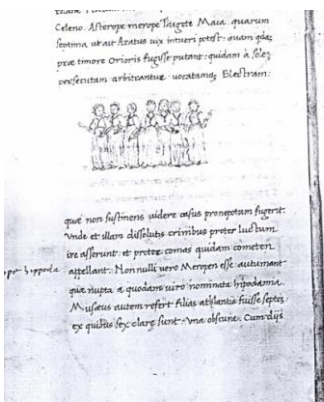 Celeno. Asterope merope Taugete Maia quarum
septima ut ait Aratus uix intueri potest. quam qdā
præ timore Orionis fugisse putant: quidam a sole
persecutam arbitrantur uocatamq; Electram:
quæ non sustinens uidere casus pronepotum fugerit.
Vnde et illam dissolutis crinibus propter luctum
ire asserunt. et propter comas quidam cometen
appellant. Nonnulli uero Meropen esse autumant
quæ nupta a quodam uiro nominata hipodamia.
Musæus autem refert filias athlantis fuisse septē
ex quibus sex claræ sunt. Vna obscura. Cum dijs